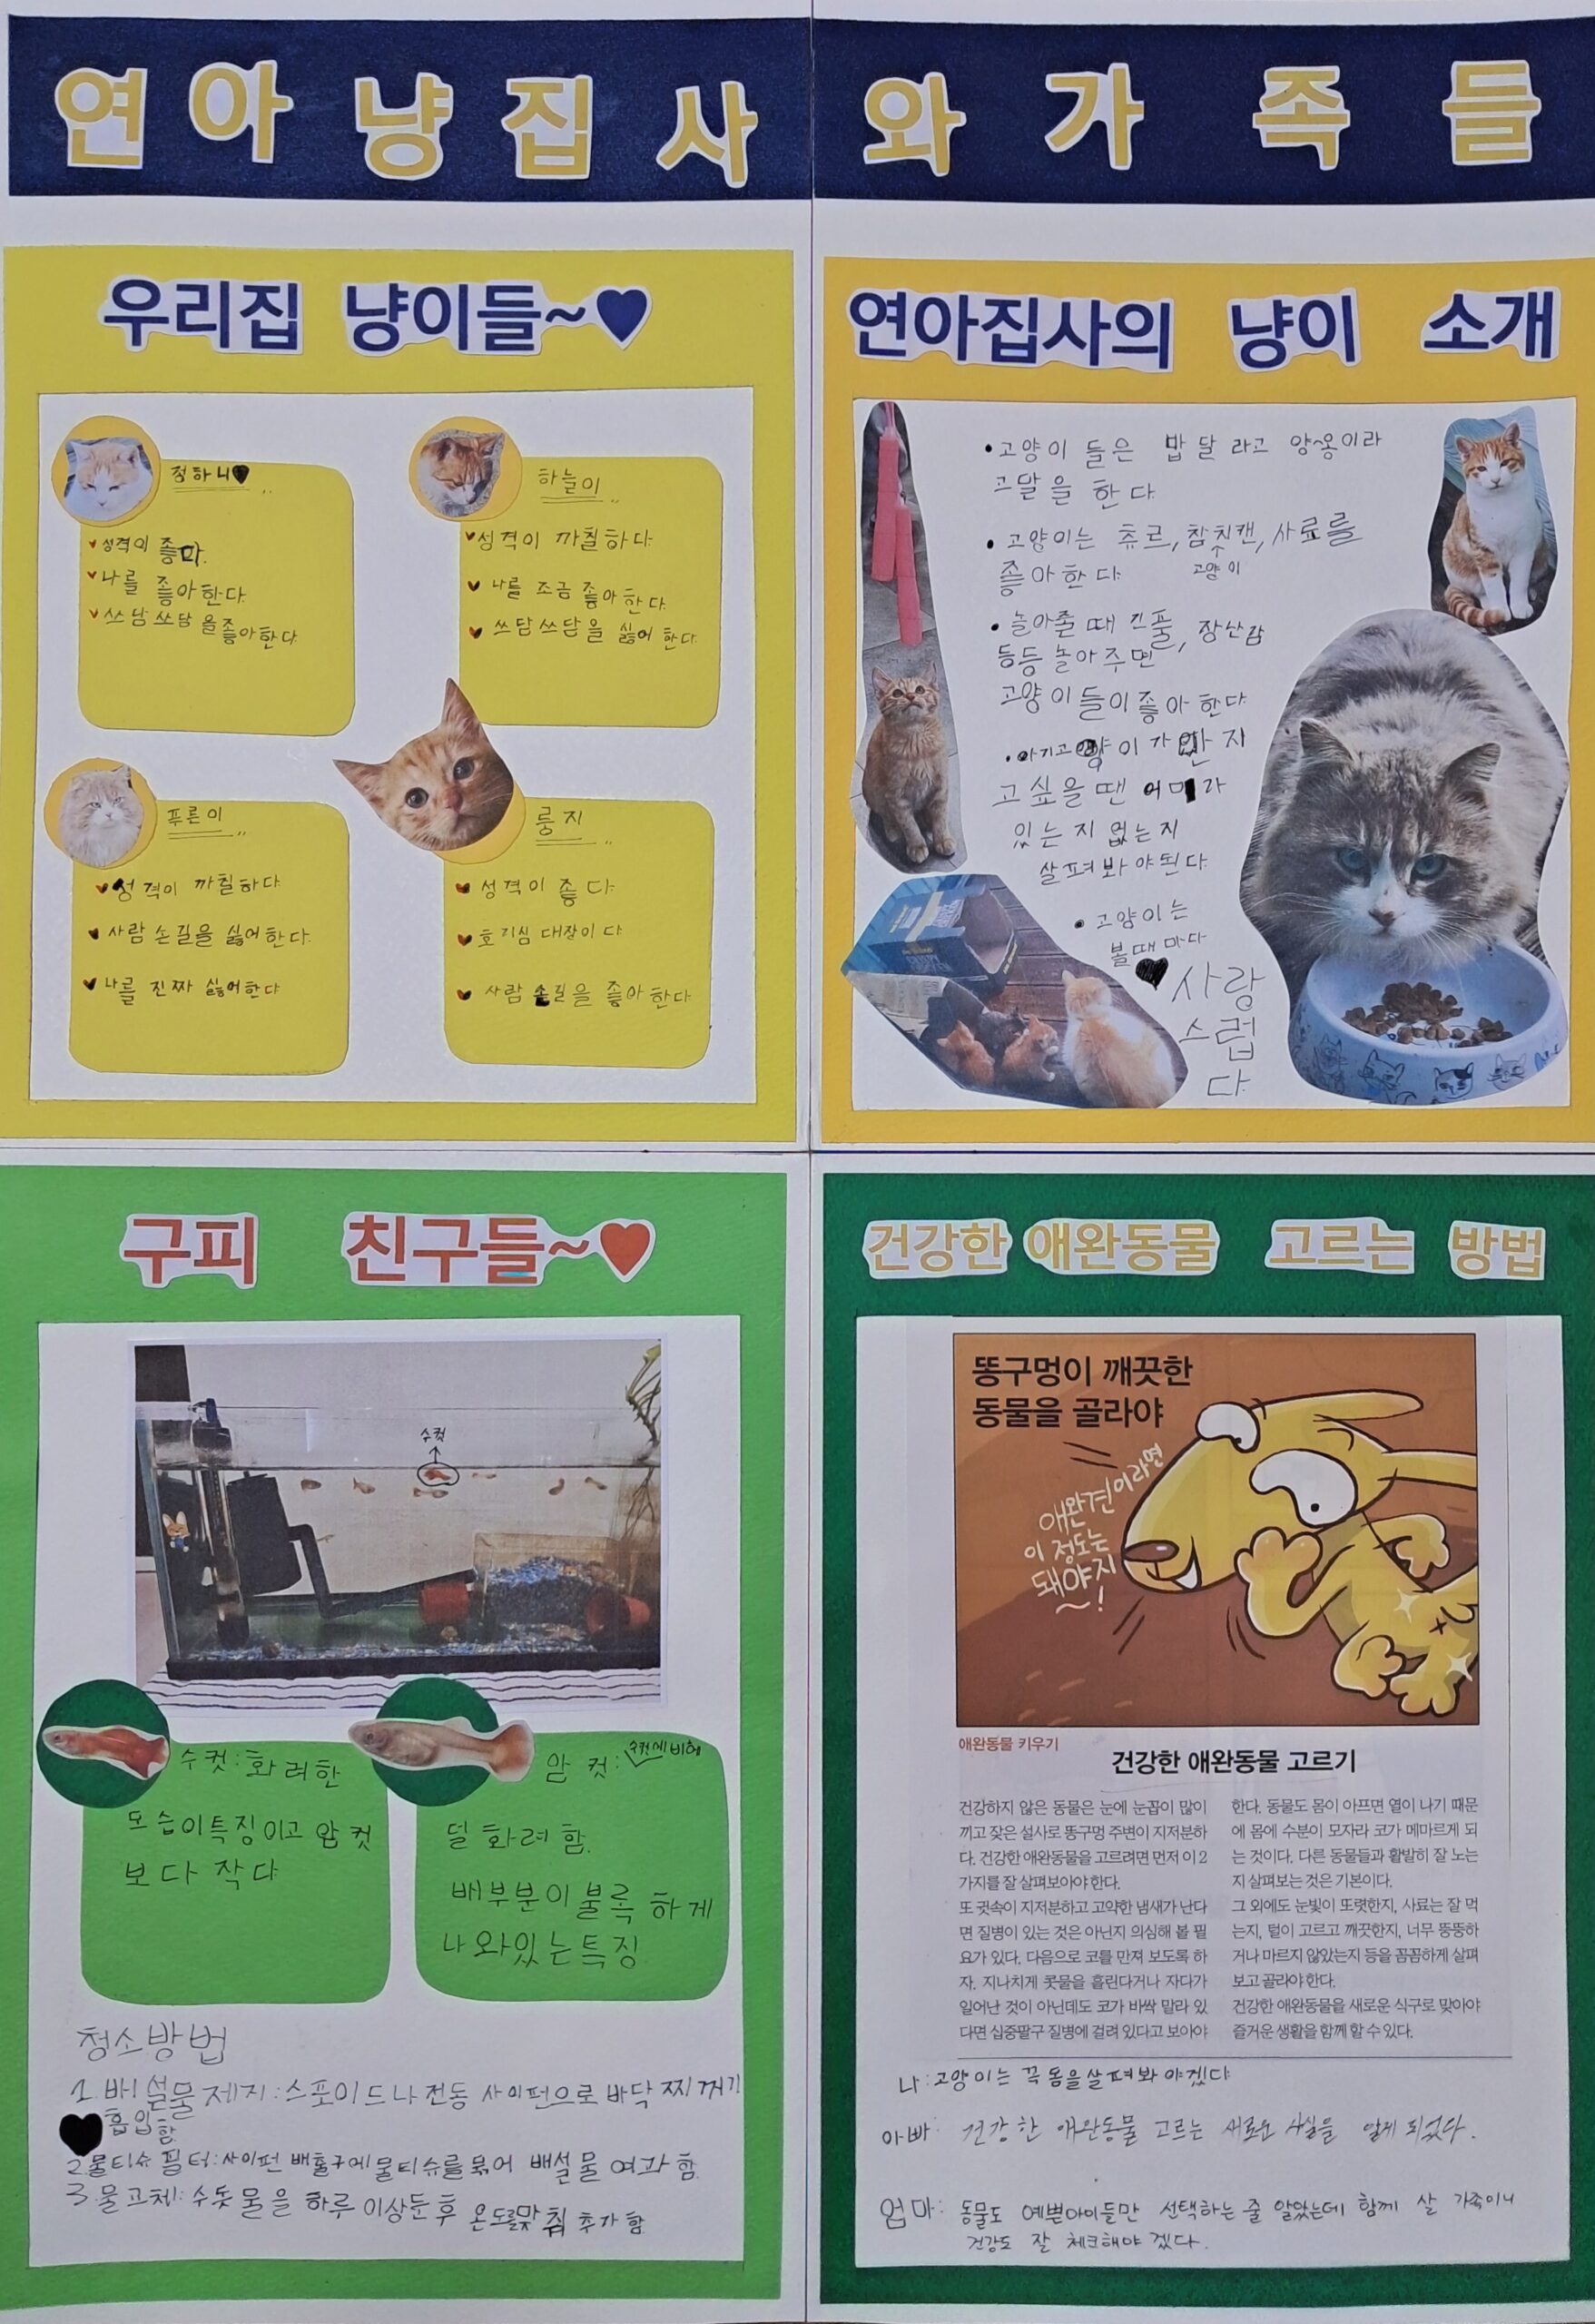 연아 냥집사와 가족들
우리집 냥이들~♥
정하니♥
성격이 좋다.
나를 좋아한다
쓰담쓰담을좋아한다
하늘이
성격이 까칠하다
나를 조금 좋아한다
쓰담쓰담을 싫어한다
푸른이
성격이 까칠하다
사람 손길을 싫어한다
나를 진짜 싫어한다
룽지
성격이 좋다
호기심 대장이다
사람 손길을 좋아한다
연아집사의 냥이 소개
•고양이들은 밥 달라고 양~옹이라
고말을 한다
•고양이는 츄르, 참치캔, 사료를
고양이
좋아한다
•놀아줄때 긴풀, 장난감
등등 놀아주면
고양이들이좋아한다
•아기고양이가 만지
고싶을땐 어미라
있는지 없는지
살펴봐야된다
•고양이는
볼때마다
♥사랑
스럽
다
구피 친구들~♥
수컷
수컷:화려한
모습이특징이고 암컷
보다 작다
암컷: 수컷에비해
덜 화려함.
배부분이 불룩하게
나와있는특징
청소방법
1.배설물제지:스포이드나 전동 사이펀으로 바닥 찌꺼기
♥흡입함
2.물티슈 필터:사이펀 배출구에물티슈를묶어 배설물 여과함
3.물교체: 수돗물을 하루 이상둔후 온도를맞춰 추가함
건강한 애완동물 고르는 방법
똥구멍이 깨끗한
동물을 골라야
애완견이라면
이 정도는
돼야지
~!
애완동물 키우기
건강한 애완동물 고르기
건강하지 않은 동물은 눈에 눈꼽이 많이
끼고 잦은 설사로 똥구멍 주변이 지저분하
다. 건강한 애완동물을 고르려면 먼저 이 2
가지를 잘 살펴보아야 한다.
또 귓속이 지저분하고 고약한 냄새가 난다
면 질병이 있는 것은 아닌지 의심해 볼 필
요가 있다. 다음으로 코를 만져 보도록 하
자. 지나치게 콧물을 흘린다거나 자다가
일어난 것이 아닌데도 코가 바싹 말라 있
다면 십중팔구 질병에 걸려 있다고 보아야
한다. 동물도 몸이 아프면 열이 나기 때문
에 몸에 수분이 모자라 코가 메마르게 되
는 것이다. 다른 동물들과 활발히 잘 노는
지 살펴보는 것은 기본이다.
그 외에도 눈빛이 또렷한지, 사료는 잘 먹
는지, 털이 고르고 깨끗한지, 너무 뚱뚱하
거나 마르지 않았는지 등을 꼼꼼하게 살펴
보고 골라야 한다.
건강한 애완동물을 새로운 식구로 맞아야
즐거운 생활을 함께 할 수 있다.
나:고양이는 꼭 똥을살펴봐야겠다
아빠: 건강한 애완동물 고르는 새로운 사실을 알게 되었다.
엄마: 동물도 예쁜아이들만 선택하는 줄 알았는데 함께 살 가족이니
건강도 잘 체크해야 겠다.